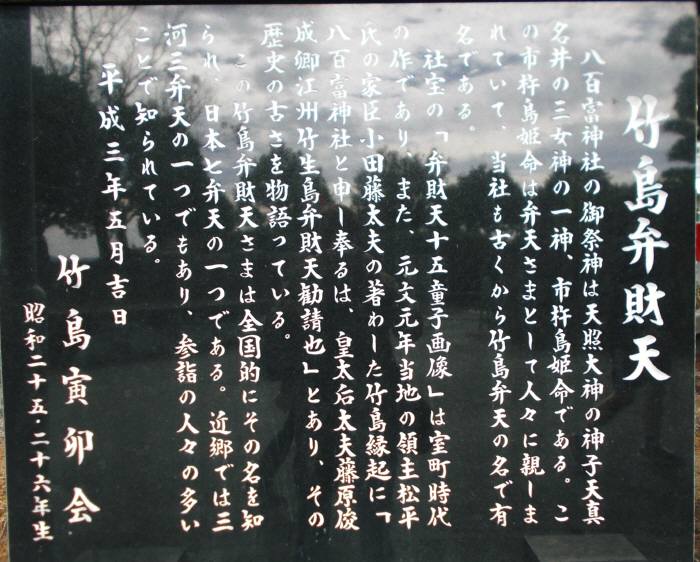 竹島弁財天
八百富神社の御祭神は天照大神の神子天真
名井の三女神の一神、市杵島姫命である。こ
の市杵島姫命は弁天さまとして人々に親しま
れていて、当社も古くから竹島弁天の名で有
名である。
社宝の「弁財天十五童子画像」は室町時代
の作であり、また、元文元年当地の領主松平
氏の家臣小田藤太夫の著わした竹島縁起に「
八百富神社と申し奉るは、皇太后太夫藤原俊
成卿江州竹生島弁財天勧請也」とあり、その
歴史の古さを物語っている。
この竹島弁財天さまは全国的にその名を知
られ、日本七弁天の一つである。近郷では三
河三弁天の一つでもあり、参詣の人々の多い
ことで知られている。
平成三年五月吉日
竹島寅卯会
昭和二十五・二十六年生